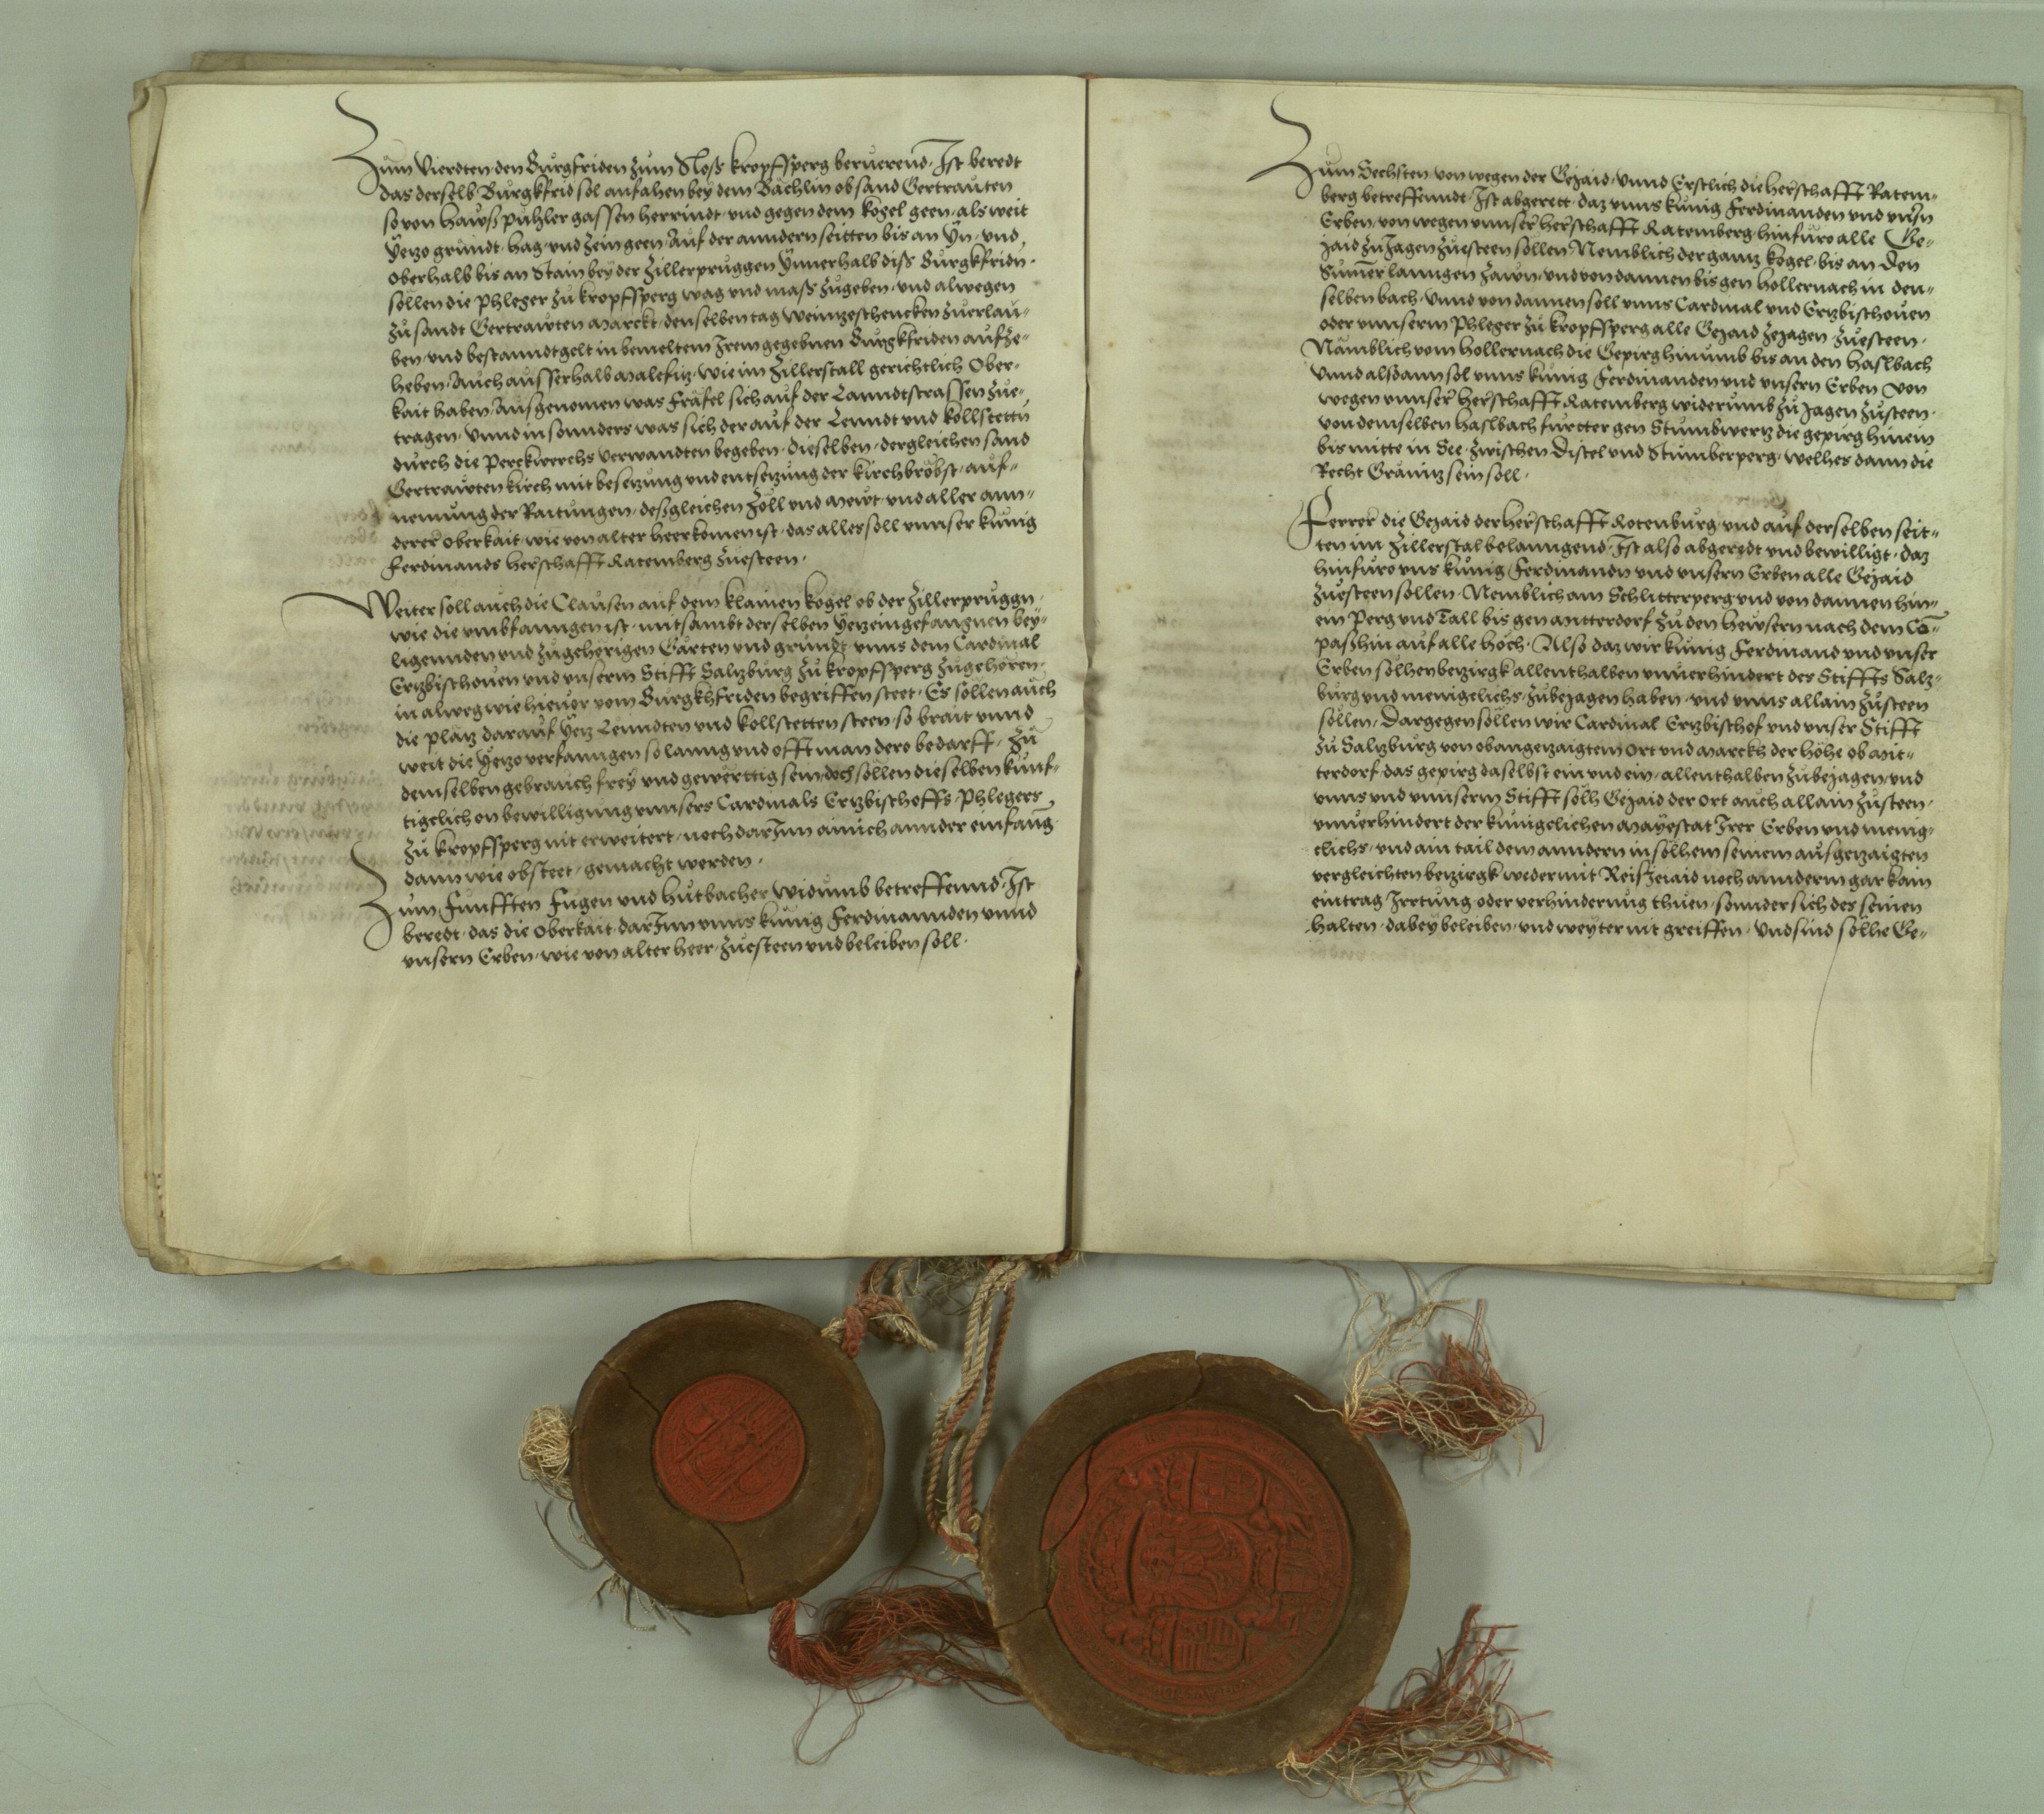 Zum Vierdten den Burgfriden zum Sloss kropfsperg beruerend. Ist beredt
das derselb Burgkfrid sol anfahen bey dem Bächlin ob sand Gertrauten
so von hawss puhler gassen herrindt. und gegen dem kogel geen. als weit
Yetzo gründt. hag. und Zein geen. Auf der anndern seitten bis an Yn. und
oberhalb bis an Stain bey der Zillerpruggen Ynnerhalb diss Burgkfridn.
sollen die phleger zu kropfsperg wag und mass zugeben. und alwegen
zu sandt Gertrawten Marckt. denselben tag weinzeschencken zuerlau-
ben. und bestanndtgelt in bemeltem Irem gegebnen Burgkfriden aufze-
heben. Auch ausserhalb Malefitz. wie im Zillerstall gerichtlich Ober-
kait haben. Ausgenomen was Fräfel sich auf der Lanndtstrassen zue-
tragen. Unnd in sonnders was sich der auf der Lenndt und kollstettn
durch die Perckwerchs verwandten begeben. dieselben. dergleichen sand
Gertrawten kirch mit besetzung und entsetzung der kirchbröbst. auf-
nemung der Raitungen. dessgleichen Zoll und Mewt. und aller ann-
derer oberkait. wie von alter heerkomen ist. das alles soll unnser kunig
Ferdinands herschafft Ratemberg zuesteen.
Weiter soll auch die Clausen auf dem klainen kogel ob der Zillerpruggn.
wie die umbfanngen ist. mitsambt derselben Yetz eingefangnen bey-
ligennden und zugehörigen Gärten und gründt. unns dem Cardinal
Ertzbischouen und unserm Stifft Saltzburg zu kropfsperg zugehören.
in alweg wie hieuor vom Burgkhfriden begriffen steet. Es sollen auch
die plätz darauf Yetz Lenndten und kollstetten steen. so brait unnd
weit die Yetzo verfanngen so lanng und offt man dero bedarff. zu
demselben gebrauch frey und gewerttig sein. doch sollen dieselben kunf-
tigelich on bewilligung unnsers Cardinals Ertzbischoffs. Phlegers
zu kropfsperg nit erweitert. noch darInn ainich annder einfang
dann wie obsteet. gemacht werden.
Zum Funfften Fugen und hutbacher widumb betreffennd. Ist
beredt. das die oberkait darInn unns kunig Ferdinannden unnd
unsern Erben. wie von alter heer. zuesteen und beleiben soll.
Zum Sechsten von wegen der Gejaid. Unnd Erstlich die herschafft Ratem-
berg betreffenndt. Ist abgerett. daz unns kunig Ferdinanden und unsn
Erben. von wegen unnser herschafft Ratemberg hinfuro alle Ge-
jaid zu Jagen zuesteen sollen. Nemblich der gantz kogel. bis an den
Summerlanngen zawn. und von dannen bis gen hollernach in den-
selben bach. Unnd von dannen soll unns Cardinal und Ertzbischouen
oder unnserm Phleger zu kropfsperg alle Gejaid zejagen zuesteen.
Nämblich vom hollernach die Gepirg hinumb bis an den haslbach
Unnd alsdann sol unns kunig Ferdinanden und unsern Erben von
wegen unnser herschafft Ratemberg widerumb zu Jagen zusteen.
von demselben haslbach furtter gen Stumbwertz die gepirg hinein
bis mitte in See. zwischen Distel und Stumberperg. welhes dann die
Recht Gränitz sein soll.
Ferrer die Gejaid der herschafft Rotenburg. und auf derselben seit-
ten im Zillerstal belanngend. Ist also abgeredt und bewilligt. daz
hinfuro uns kunig Ferdinandn und unsern Erben alle Gejaid
zuesteen sollen. Nemblich am Schlitterperg und von dannen hin-
ein Perg und Tall bis gen Mitterdorf zu den hewsern nach dem Co-
pass hin auf alle höch. Also daz wir kunig Ferdinand und unser
Erben solhen betzirgk allenthalben unuerhindert des Stiffts Saltz-
burg und menigelichs. zubejagen haben. und unns allain zusteen
sollen. Dargegen sollen wir Cardinal Ertzbischof und unser Stifft
zu Saltzburg von obangetzaigtem ort und Marckh der höhe ob Mit-
terdorf. das gepirg daselbst ein und ein. allenthalben zubejagen. und
unns und unnserm Stifft solh Gejaid der ort auch allain zusteen.
unuerhindert der kunigelichen Mayestat Irer Erben und menig-
elichs. und ain tail dem anndern in solhem seinem ausgetzaigten
vergleichten betzirgk weder mit Reisjaid noch annderm gar kain
eintrag Irrtung. oder verhinderung thuen. sonnder sich des seinen
halten. dabey beleiben. und weyter nit greiffen. Und sind solhe Ge-